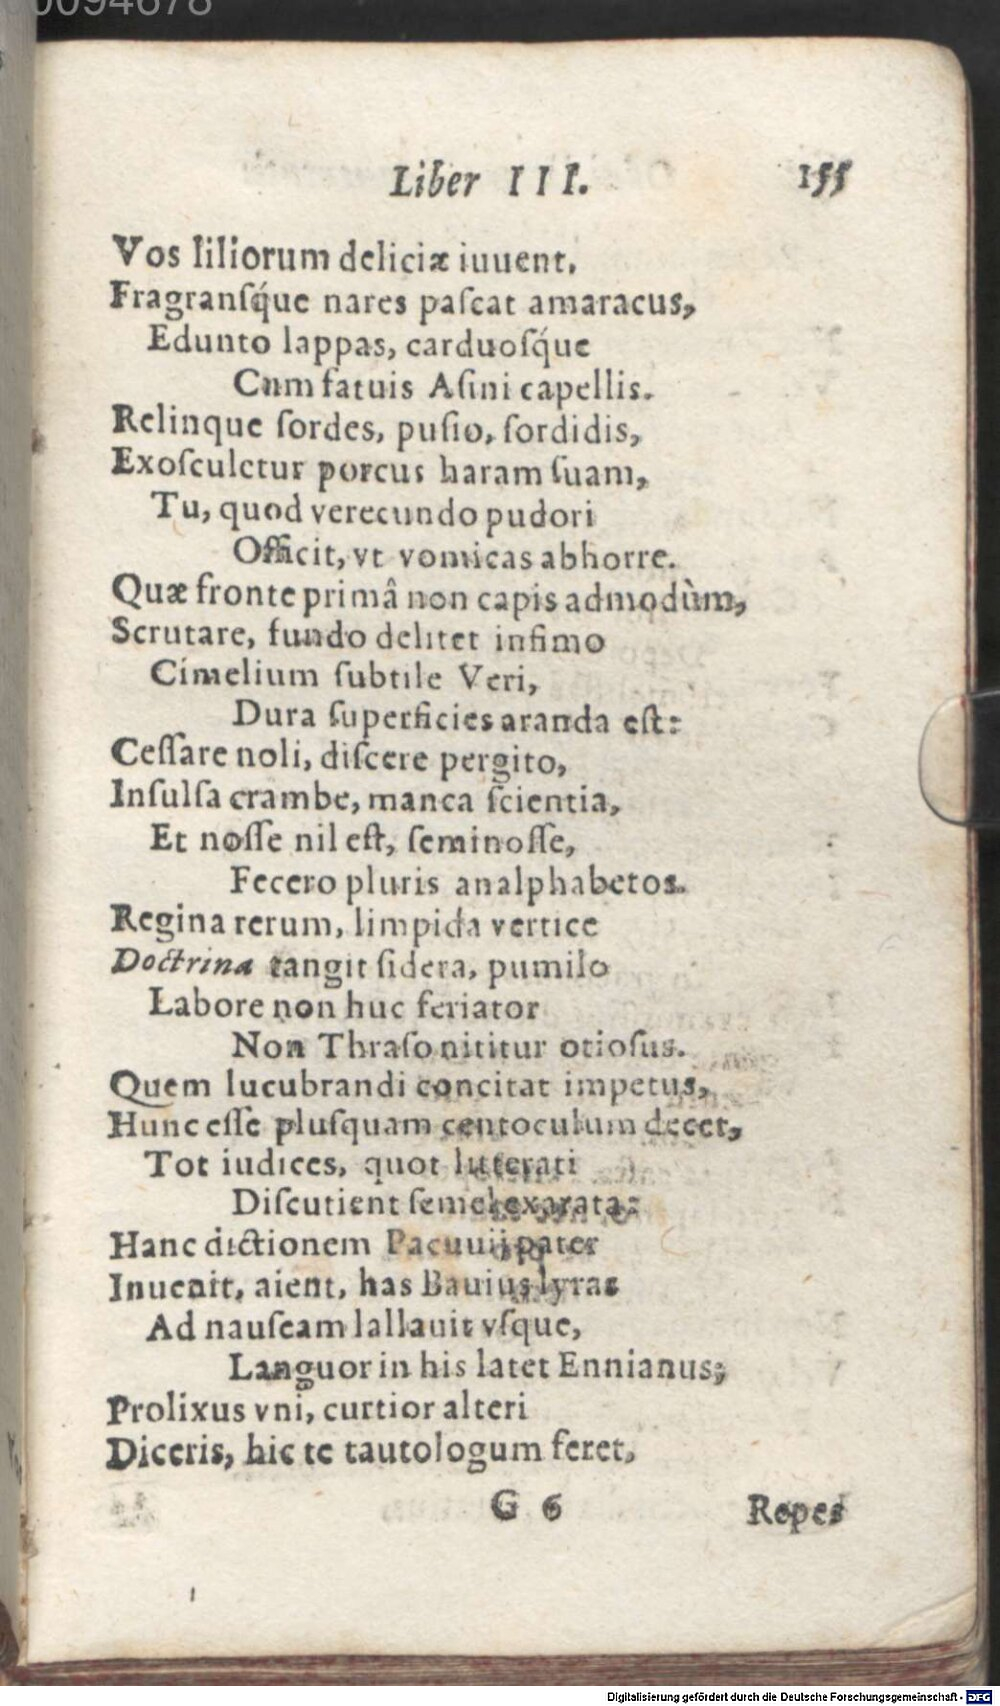 0094678
Liber III. 155
Vos liliorum deliciæ iuuent,
Fragranſq́ue nares paſcat amaracus,
Edunto lappas, carduoſq́ue
Cum fatuis Aſini capellis.
Relinque ſordes, puſio, ſordidis,
Exoſculetur porcus haram ſuam,
Tu, quod verecundo pudori
Officit, vt vomicas abhorre.
Quæ fronte primâ non capis admodùm,
Scrutare, fundo delitet infimo
Cimelium ſubtile Veri,
Dura ſuperficies aranda eſt:
Ceſſare noli, diſcere pergito,
Inſulſa crambe, manca ſcientia,
Et noſſe nil eſt, ſeminoſſe,
Fecero pluris analphabetos.
Regina rerum, limpida vertice
Doctrina tangit ſidera, pumilo
Labore non huc feriator
Non Thraſo nititur otioſus.
Quem lucubrandi concitat impetus,
Hunc eſſe pluſquam centoculum decet,
Tot iudices, quot litterati
Diſcutient ſemel exarata:
Hanc dictionem Pacuuij pater
Inuenit, aient, has Bauius lyras
Ad nauſeam lallauit vſque,
Languor in his latet Ennianus;
Prolixus vni, curtior alteri
Diceris, hic te tautologum feret,
G 6 Repes
Digitalisierung gefördert durch die Deutsche Forschungsgemeinschaft - DFG